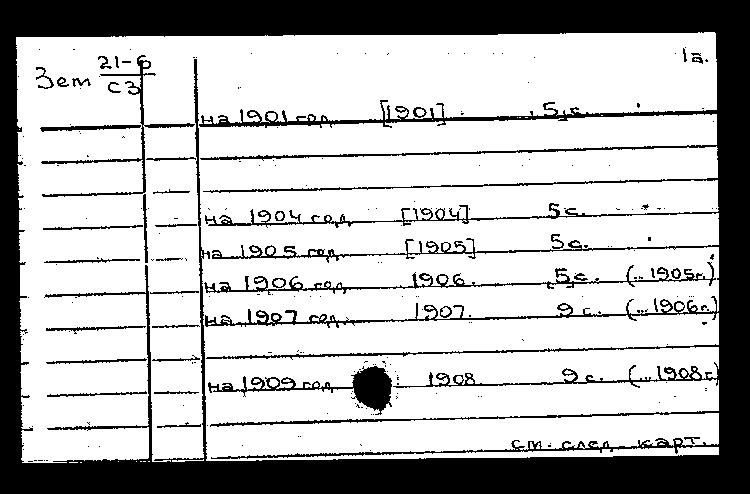 1а.
Зет 21-6
СЗ
на 1901 год [1901] 5 с.
на 1904 год [1904] 5 с.
на 1905 год [1905] 5 с.
на 1906 год 1906. 5 с. (... 1905 г.)
на 1907 год 1907. 9 с. (... 1906 г.)
на 1909 год 1908 9 с. (... 1908 г.)
см. след. карт.